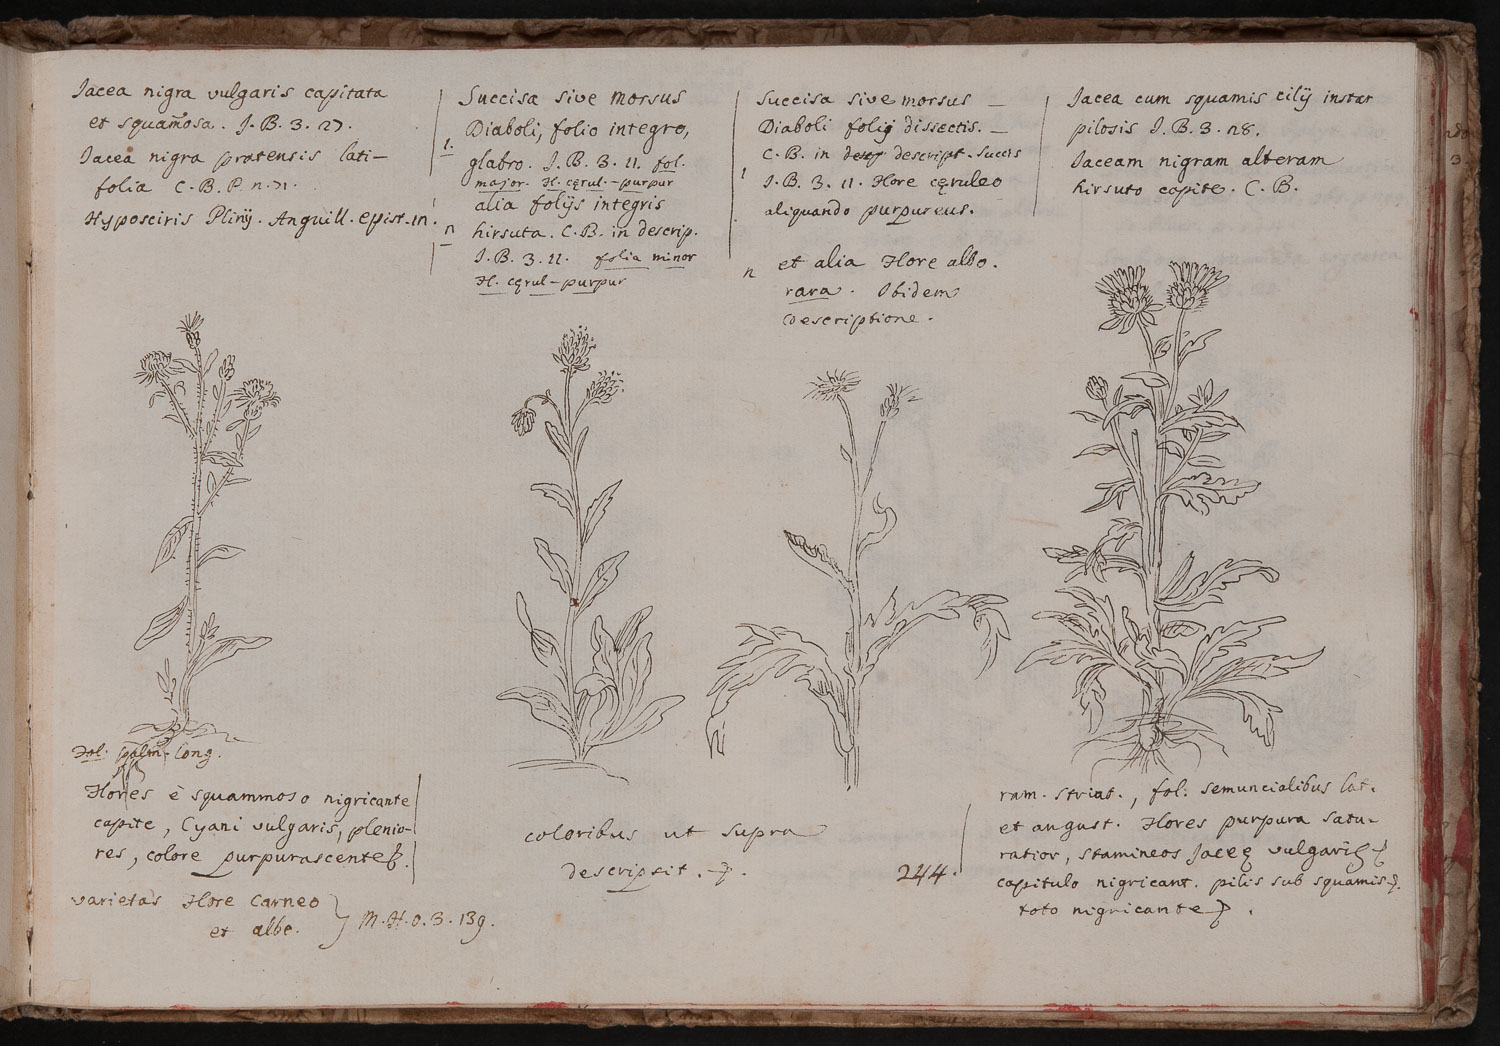 Jacea nigra vulgaris capitata
et squamosa. J. B. 3. 27.
Jacea nigra pratensis lati-
folia C. B. P. n. 71.
Hyposciris Plinij. Anguill. epist. in.
Succisa sive morsus
Diaboli, folio integro,
1. glabro. J. B. 3. 11. fol.
major. fl. cęrul.-purpur
alia folijs integris
n hirsuta. C. B. in descrip.
J. B. 3. 11. folia minor
fl. cęrul-purpur
Succisa sive morsus
Diaboli folij dissectis.
C. B. in descript. Succis
1 J. B. 3. 11. flore cęruleo
aliquando purpureus.
n et alia flore albo.
rara. Ibidem
descriptione.
Jacea cum squamis cilij instar
pilosis J. B. 3. 28.
Jaceam nigram alteram
hirsuto capite. C. B.
fol. palm-long.
Flores è squammoso nigricante
capite, Cyani vulgaris, plenio-
res, colore purpurascente.
varietas flore carneo
et albo. } M. H. O. 3. 139.
coloribus ut supra
descripsit.
244.
ram. striat., fol: semuncialibus lat.
et angust. Flores purpura satu-
ratior, stamineos Jaceę vulgaris
capitulo nigricant. pilis sub squamis
toto nigricante.